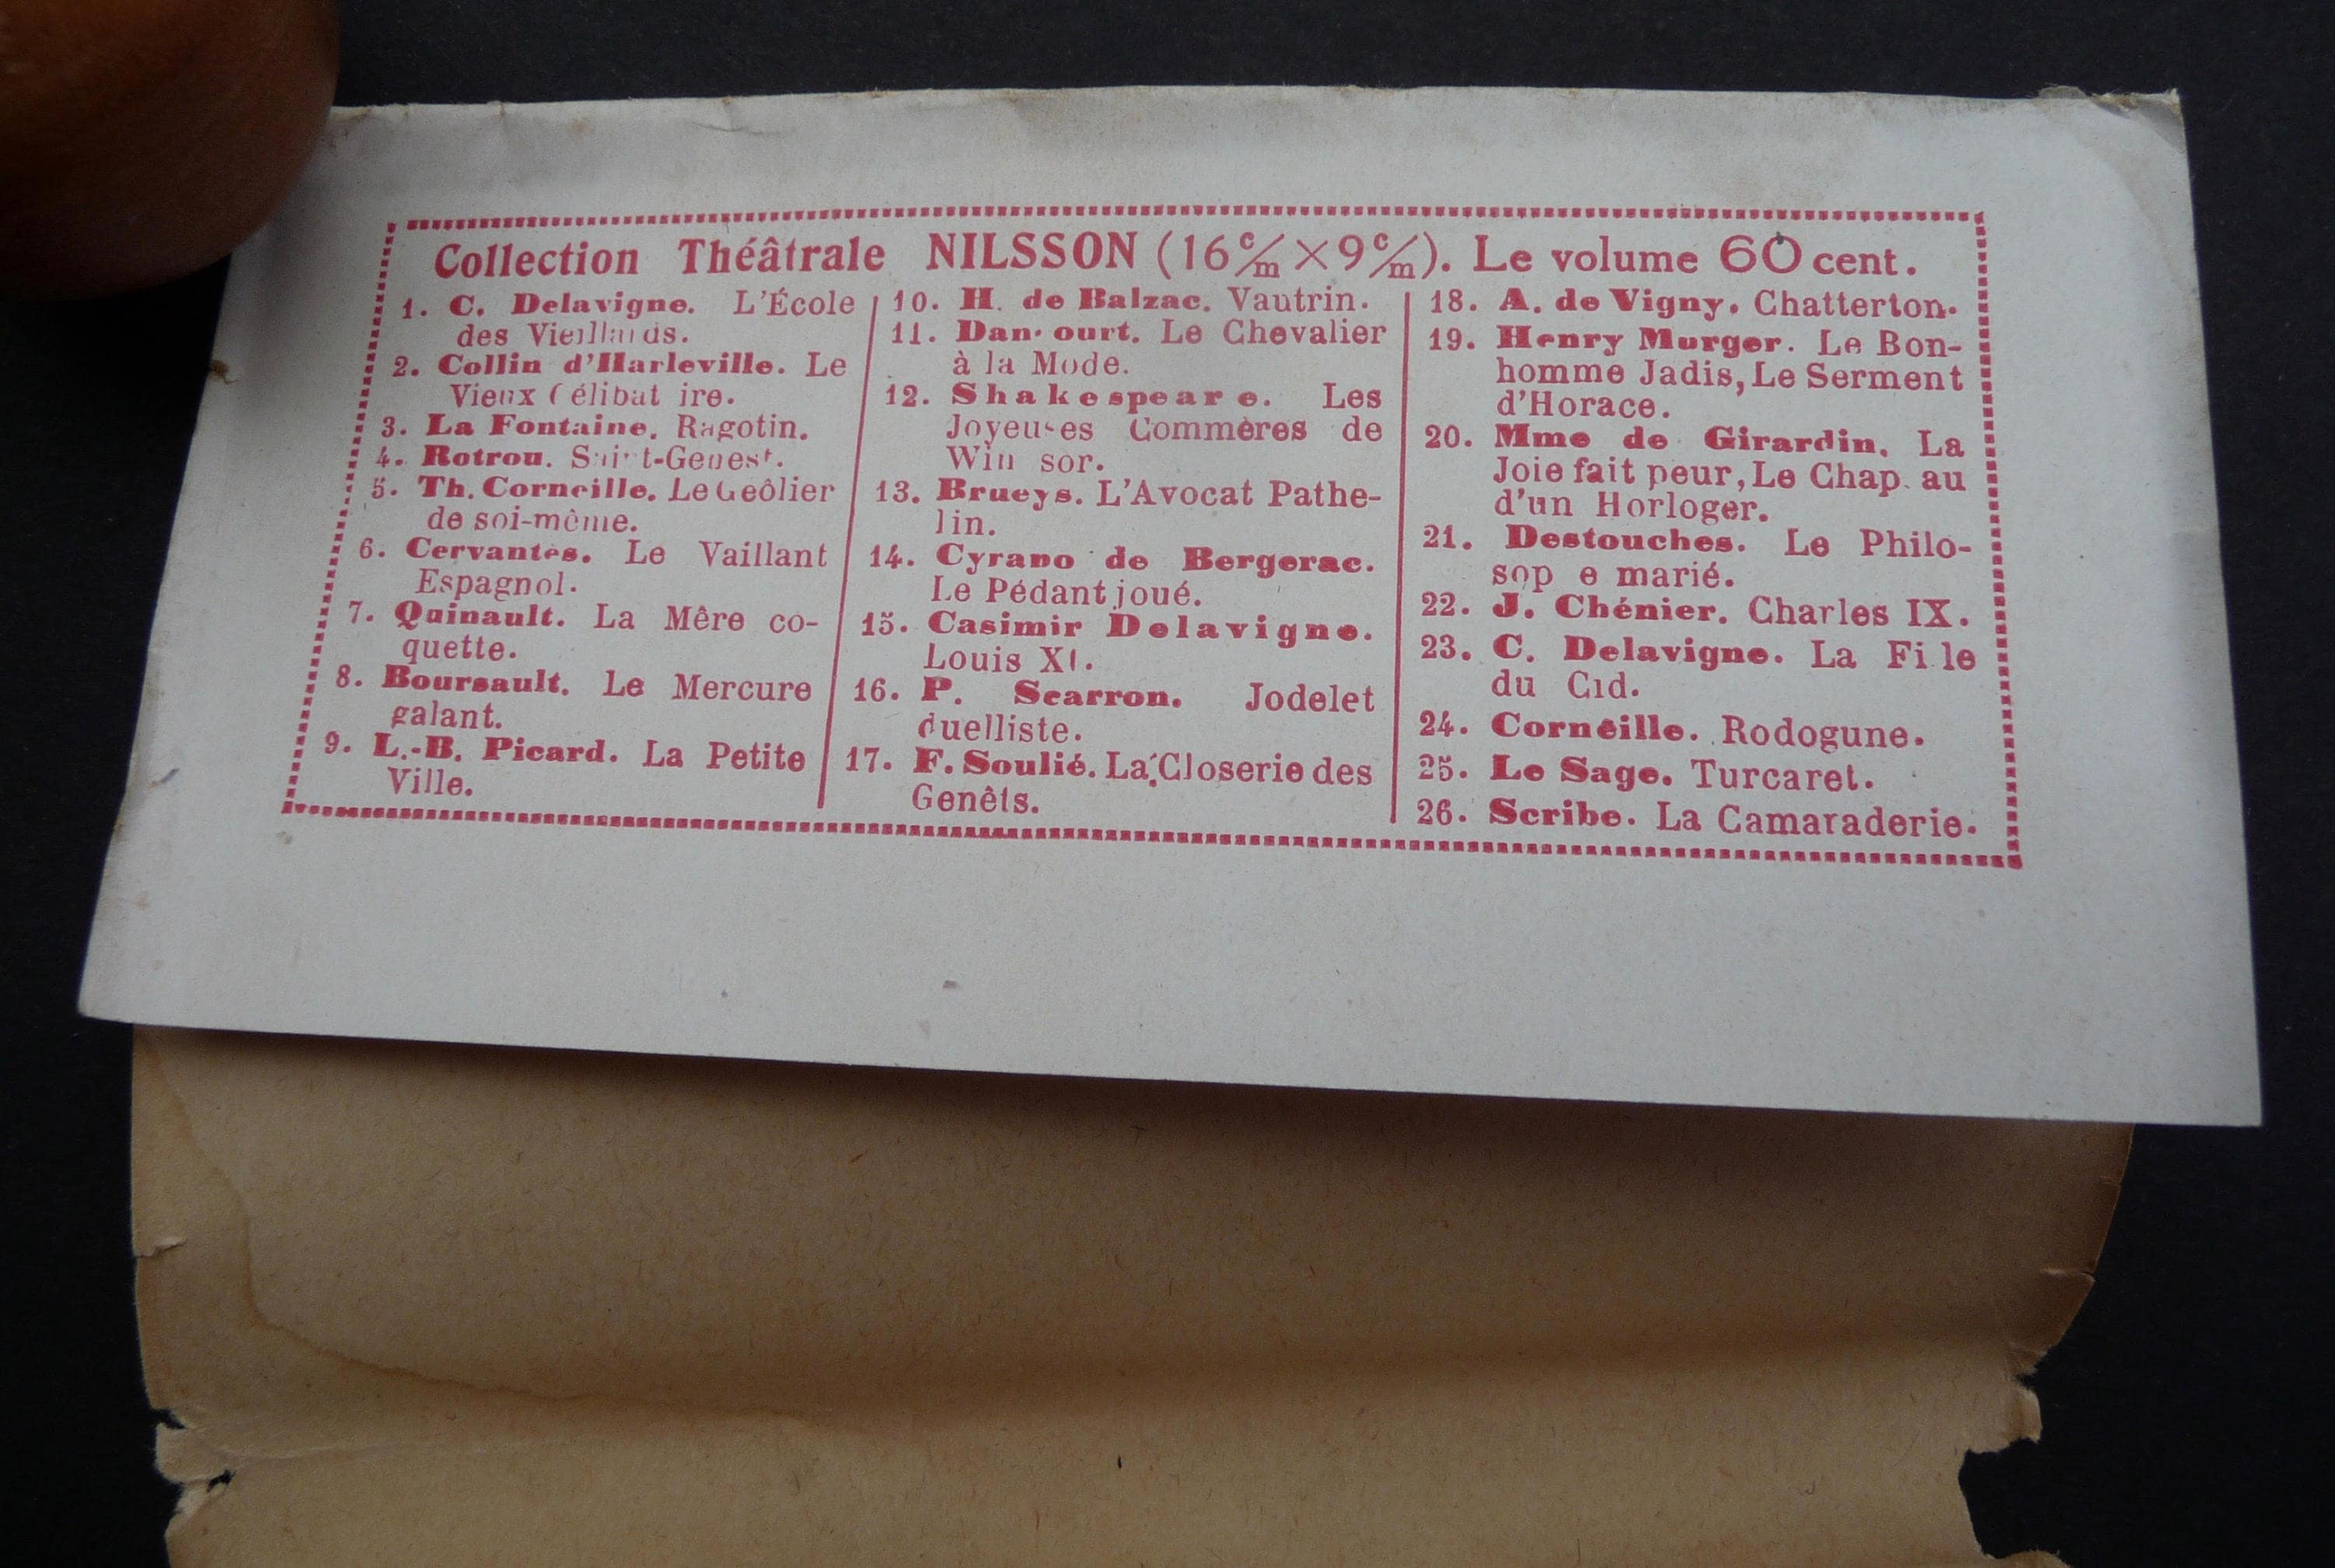 Collection Théâtrale NILSSON (16 c/m × 9 c/m). Le volume 60 cent.
1. C. Delavigne. L'École
des Vieillards.
2. Collin d'Harleville. Le
Vieux Célibat ire.
3. La Fontaine. Ragotin.
4. Rotrou. Saint-Genest.
5. Th. Corneille. Le Geôlier
de soi-même.
6. Cervantès. Le Vaillant
Espagnol.
7. Quinault. La Mêre co-
quette.
8. Boursault. Le Mercure
galant.
9. L.-B. Picard. La Petite
Ville.
10. H. de Balzac. Vautrin.
11. Dan ourt. Le Chevalier
à la Mode.
12. Shakespeare. Les
Joyeuses Commères de
Win sor.
13. Brueys. L'Avocat Pathe-
lin.
14. Cyrano de Bergerac.
Le Pédant joué.
15. Casimir Delavigne.
Louis XI.
16. P. Scarron. Jodelet
duelliste.
17. F. Soulié. La Closerie des
Genêts.
18. A. de Vigny. Chatterton.
19. Henry Murger. Le Bon-
homme Jadis, Le Serment
d'Horace.
20. Mme de Girardin. La
Joie fait peur, Le Chap au
d'un Horloger.
21. Destouches. Le Philo-
sop e marié.
22. J. Chénier. Charles IX.
23. C. Delavigne. La Fi le
du Cid.
24. Corneille. Rodogune.
25. Le Sage. Turcaret.
26. Scribe. La Camaraderie.